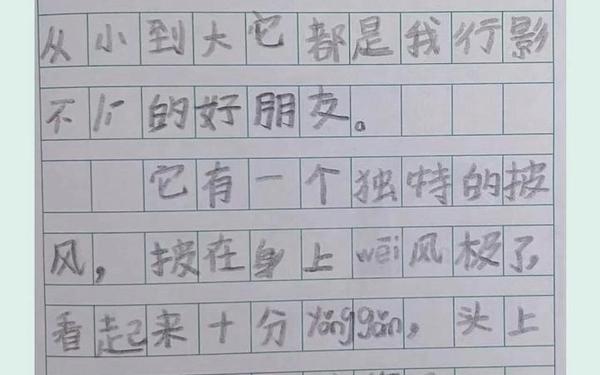 从小到大它都是我行影
不的好朋友。
它有一个独特的披
风，披在身上wēi风极了，
看起来十分yǒnggǎn，头上